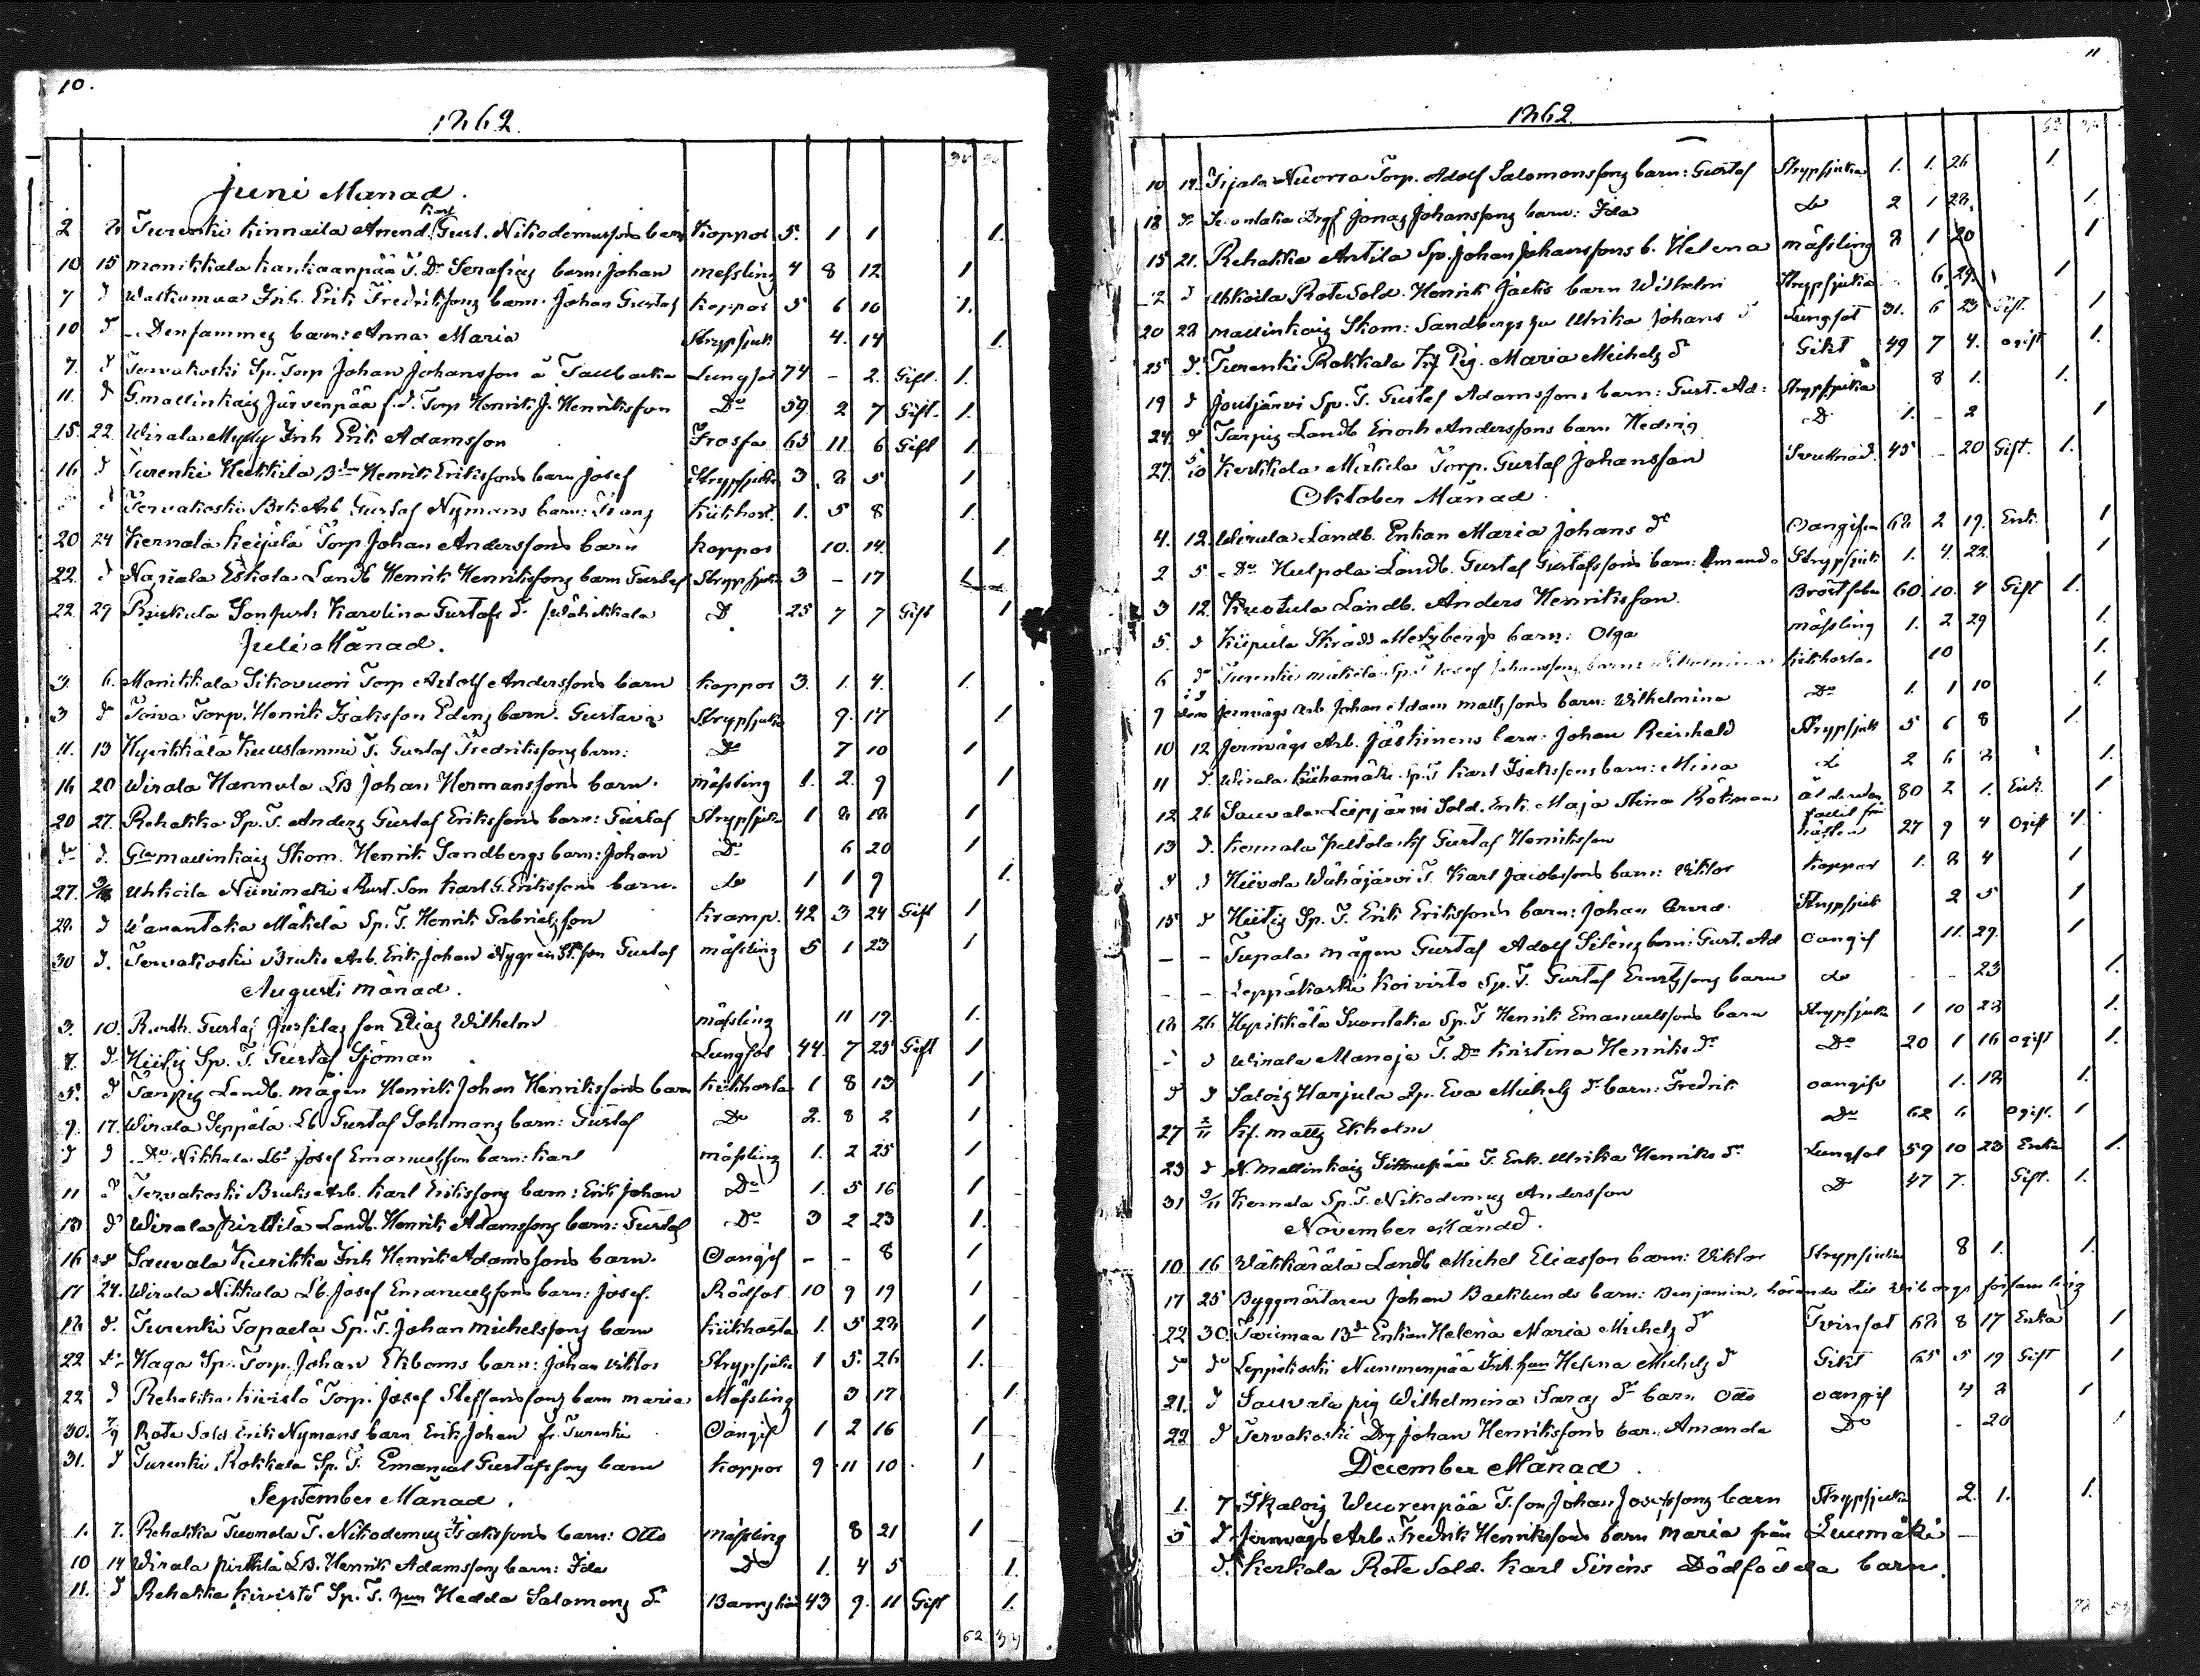 10.
1862.
Juni Månad.
2 Turenki Kinnaila Arrend. Karl Gust. Nikodemusfons barn Koppor 5. 1 1 1.
10 15 Monikkala Kankaanpää T. Dr Serafias barn: Johan messling 4 8 12. 1
7 d Inh. Erik Fredriksfons barn. Johan Gustaf Koppor 5 6 10 1.
10 d Densammes barn: Anna Maria Strypsjuk 4. 14 1.
7. d Tervakoski Sp. Torp Johan Johansson Lungsot 74 - 2. Gift. 1.
11. d G. Mallinkais Järvenpää f. d. Torp Henrik J. Henriksson Do 59 2 7 Gift. 1.
15. 22. Wirala Mylly Inh Erik Adamsson Frossa 65 11. 6 Gift 1.
16 d Turenki Heikkilä Henrik Eriksfons barn Josef Strypsjuka 3. 2 5 1
d Tervakoski Bruks Arb Gustaf Nymans barn: Frans Kikhost. 1. 5 8 1.
20 24 Kernala Keijälä Torp Johan Anderssons barn Koppor 10. 14. 1.
22. d Napiala Eskola Landb Henrik Henriksfons barn Gustaf Strypsjuka 3 - 17 1
22. 29 Karolina Gustafs dr D 25 7 7 Gift 1
Juli Månad.
3. 6. Monikkala Sikovuori Torp Adolf Andersfons barn Koppor 3. 1. 4. 1.
3 d Toiva Torp. Henrik Isaksson Edens barn. Gustava Strypsjuka 9. 17 1.
11. 13 Hyvikkälä Kuuslammi T. Gustaf Fredriksfons barn: Do 7 10 1
16 20 Wirala Hannula LB Johan Hermansfons barn. mässling 1. 2. 9 1
20 27. Rehakka Sp. T. Anders Gustaf Eriksfons barn: Gustaf Strypsjuk 1 2 12 1
do d. Gla Mallinkais Skom. Henrik Sandbergs barn: Johan Do 6 20 1
27. Uhkoila Niinimäki Karl G. Eriksfons barn. do 1 1 9 1.
29. d Wanantaka Mäkelä Sp. T. Henrik Gabrielsson Kramp. 42 3 24 Gift 1
30 d. Tervakoski Bruks Arb. Erik Johan Nygren Gustaf mässling 5 1 23 1
Augusti Månad.
3. 10. Gustaf Jusfilas son Elias Wilhelm mässling 11 19. 1.
7. d Hiitis Sp. T. Gustaf Sjöman Lungsot 44. 7 25 Gift 1
5. d Tarpis Landb. mågen Henrik Johan Henriksfons barn Kikhosta 1 8 13 1
9. 17. Wirala Seppälä Lb Gustaf Sohlmans barn: Gustaf Do 2. 8 2 1
d d Do Nikkala Lbs Josef Emanuelsson barn: Karl mässling 1. 2 25 1
11 d Tervakoski Bruks Arb. Karl Eriksfons barn: Erik Johan Do 1. 5 16 1.
13 d Wirala Pirttilä Landb. Henrik Adamsfons barn: Gustaf Do 3 2 23 1.
16 d Sauvala Kurikka Inh Henrik Adamsfons barn. Oangif - - 8 1
17 24. Wirala Nikkala Lb. Josef Emanuelsfons barn: Josef. Rödsot 10 9 19 1
d. Turenki Tapaela Sp. T. Johan Michelsfons barn Kikhosta 1. 5 22 1
22 d Haga Sp. Torp. Johan Ekboms barn: Johan Viktor Strypsjuka 1 5. 26 1.
22 d Rehakka Kivistö Torp. Josef Steffansfons barn Maria Mässling 3 17 1.
30. 7/9 Rote Sold Erik Nymans barn Erik Johan fr. Turenki Oangif 1 2 16 1
31. d Turenki Rokkala Sp. T. Emanuel Gustafsfons barn Koppor 9 11 10 1
September Månad.
1. 7. Rehakka Tuomela T. Nikodemus Isaksfons barn: Otto mässling 8 21 1
10 14 Wirala Pirttilä LB. Henrik Adamsfons barn: Ida Do 1. 4 5 1.
11. d Rehakka Kivistö Sp. T. hun Hedda Salomons dr 43 9. 11 Gift 1.
62 39
11
1862.
10 14. Nuorra Torp. Adolf Salomonsfons barn: Gustaf Strypsjuka 1. 1. 26 1.
18 d Johansfons barn: Ida do 2 1 22. 1.
15 21. Rehakka Antila Sp. Johan Johansfons b. Helena mässling 2 1 20 1
12 d Uhkoila Rote Sold. Henrik Jäcks barn Wilhelm Strypsjuka 6 29. 1
20 22 Mallinkais Skom: Sandbergs hu Ulrika Johans d Lungsot 31. 6 23 Gift. 1
25 d. Turenki Rokkala Pig. Maria Michels dr Gikt 49 7 4. ogift 1.
19 d Joutjärvi Sp. T. Gustaf Adamsfons barn: Gust. Ad: Strypsjuka 8 1. 1.
24 d Tarpis Landb Enoch Andersfons barn Hedvig D 1. - 2 1
27. 5/10 Mäkelä Torp. Gustaf Johansson 45 - 20 Gift. 1.
Oktober Månad.
4. 12. Wirala Landb. Enkan Maria Johans dr Oangifven 62 2 19. Enk. 1
2 5 Do Hulpola Landb. Gustaf Gustafsfons barn: Amanda Strypsjuk 1. 4. 22 1
3 12. Landb. Anders Henriksson. Bröstfeber 60. 10. 4 Gift 1.
5. d Kiipula barn: Olga mässling 1. 2 29 1.
6 d Turenki Mäkelä Sp. T Josef Johansfons barn: Wilhelmina Kikhosta. 10 1.
9 Jernvägs Arb. Johan Adam Mattsfons barn: Wilhelmina Do 1. 1 10 1.
10 12 Jernvägs Arb. Jäskinens barn: Johan Reinhold Strypsjuk 5 6 8 1.
11 d. Wirala Riihamäki Sp. T Karl Isaksfons barn: Mina do 2 6 2 1.
12 26 Sauvala Leipjärvi Sold. Enk. Maja Stina Rökman ålderdom 80 2 1. Enk. 1
13 d. Kernala Peltola Gustaf Henriksson fallit från hästen 27 9 4 Ogift 1.
d d Hiivola Wähäjärvi T. Karl Jacobsfons barn: Viktor Koppor 1. 2 4 1
15 d Hiitis Sp. T. Erik Eriksfons barn: Johan Strypsjuk 2 5 1
- - Tupala mågen Gustaf Adolf Siléns barn: Gust. Ad oangif 11. 29. 1
- - Leppäkoski Koivisto Sp. T. Gustaf Ernstsfons barn do - - 23 1.
12 26. Hyvikkälä Suontaka Sp. T Henrik Emanuelsfons barn Strypsjuk 1 10 22 1.
d d Wirala Manoja T. Dr Kristina Henriks dr Do 20 1 16 ogift 1.
d d Salois Harjula Eva Michels dr barn: Fredrik oangif 1. 12 1.
27 2/11 Matts Ekholm Do 62 6 ogift. 1
23 d N Mallinkais T. Enk. Ulrika Henriks dr Lungsot 59 10 23 Enka 1.
31 9/11 Kernala Sp. T. Nikodemus Andersson D 47 7. Gift. 1.
November Månad.
10 16 Wäkkärälä Landb Michel Eliasson barn: Viktor Strypsjuka 8 1. 1.
17 25 Byggmästaren Johan Backlunds barn: Benjamin, hörande till Wiborgs församling
22 30. Enkan Helena Maria Michels dr Tvinsot 62 8 17 Enka 1
do do Leppäkoski Nummenpää Inh. hun Helena Michels d Gikt 65 5 19 Gift 1
21. d Sauvala pig Wilhelmina Saras dr barn Otto oangif 4 2 1
22 d Tervakoski Drg Johan Henriksfons barn Amanda Do - 20 1
December Månad.
1. 7. Wuorenpää T. son Johan Josefsfons barn Strypsjuka 2. 1. 1.
5 d Jernvägs Arb. Fredrik Henriksfons barn Maria från Luumäki -
d. Kerkola Rote Sold. Karl Siréns Dödfödda barn.